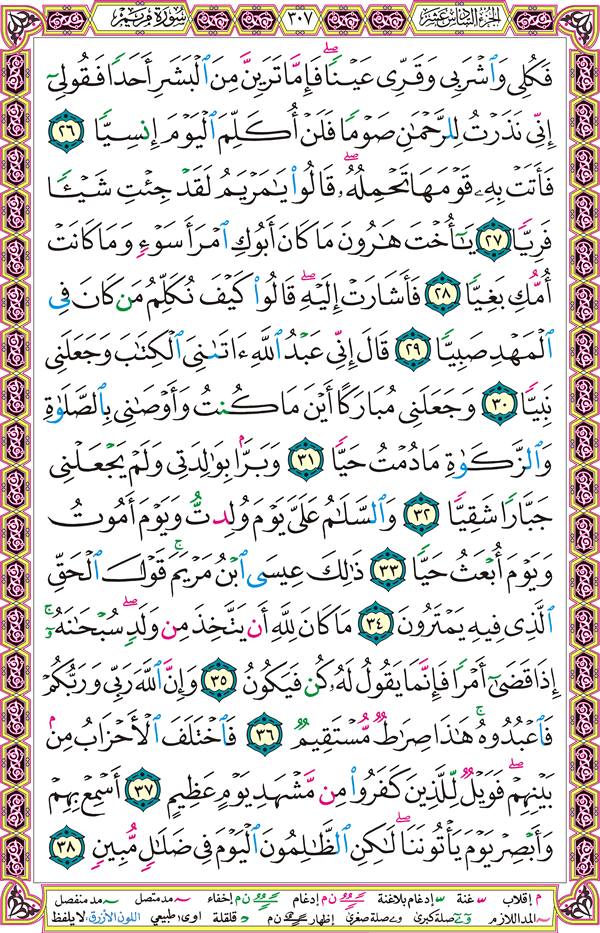 الجزء السادس عشر ٣٠٧ سورة مريم
فَكُلِي وَاشْرَبِي وَقَرِّي عَيْنًا ۖ فَإِمَّا تَرَيِنَّ مِنَ الْبَشَرِ أَحَدًا فَقُولِي
إِنِّي نَذَرْتُ لِلرَّحْمَٰنِ صَوْمًا فَلَنْ أُكَلِّمَ الْيَوْمَ إِنسِيًّا ٢٦
فَأَتَتْ بِهِ قَوْمَهَا تَحْمِلُهُ ۖ قَالُوا يَا مَرْيَمُ لَقَدْ جِئْتِ شَيْئًا
فَرِيًّا ٢٧ يَا أُخْتَ هَارُونَ مَا كَانَ أَبُوكِ امْرَأَ سَوْءٍ وَمَا كَانَتْ
أُمُّكِ بَغِيًّا ٢٨ فَأَشَارَتْ إِلَيْهِ ۖ قَالُوا كَيْفَ نُكَلِّمُ مَن كَانَ فِي
الْمَهْدِ صَبِيًّا ٢٩ قَالَ إِنِّي عَبْدُ اللَّهِ ءَاتَانِيَ الْكِتَابَ وَجَعَلَنِي
نَبِيًّا ٣٠ وَجَعَلَنِي مُبَارَكًا أَيْنَ مَا كُنتُ وَأَوْصَانِي بِالصَّلَوٰةِ
وَالزَّكَوٰةِ مَا دُمْتُ حَيًّا ٣١ وَبَرًّا بِوَالِدَتِي وَلَمْ يَجْعَلْنِي
جَبَّارًا شَقِيًّا ٣٢ وَالسَّلَامُ عَلَيَّ يَوْمَ وُلِدتُّ وَيَوْمَ أَمُوتُ
وَيَوْمَ أُبْعَثُ حَيًّا ٣٣ ذَٰلِكَ عِيسَى ابْنُ مَرْيَمَ ۚ قَوْلَ الْحَقِّ
الَّذِي فِيهِ يَمْتَرُونَ ٣٤ مَا كَانَ لِلَّهِ أَن يَتَّخِذَ مِن وَلَدٍ ۖ سُبْحَانَهُ ۚ
إِذَا قَضَىٰ أَمْرًا فَإِنَّمَا يَقُولُ لَهُ كُن فَيَكُونُ ٣٥ وَإِنَّ اللَّهَ رَبِّي وَرَبُّكُمْ
فَاعْبُدُوهُ ۚ هَٰذَا صِرَاطٌ مُّسْتَقِيمٌ ٣٦ فَاخْتَلَفَ الْأَحْزَابُ مِن
بَيْنِهِمْ ۖ فَوَيْلٌ لِّلَّذِينَ كَفَرُوا مِن مَّشْهَدِ يَوْمٍ عَظِيمٍ ٣٧ أَسْمِعْ بِهِمْ
وَأَبْصِرْ يَوْمَ يَأْتُونَنَا ۖ لَٰكِنِ الظَّالِمُونَ الْيَوْمَ فِي ضَلَالٍ مُّبِينٍ ٣٨
م إقلاب غنة إدغام بلاغنة ن م إدغام ن م إخفاء مد متصل مد منفصل
المد اللازم صلة كبرى صلة صغرى إظهار ن م قلقلة اوى طبيعي اللون الأزرق: لا يلفظ